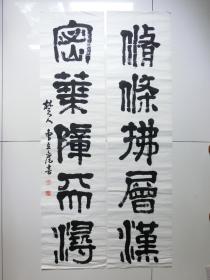 脩條拂層漢
密葉障天潯
楚人曹立庵書